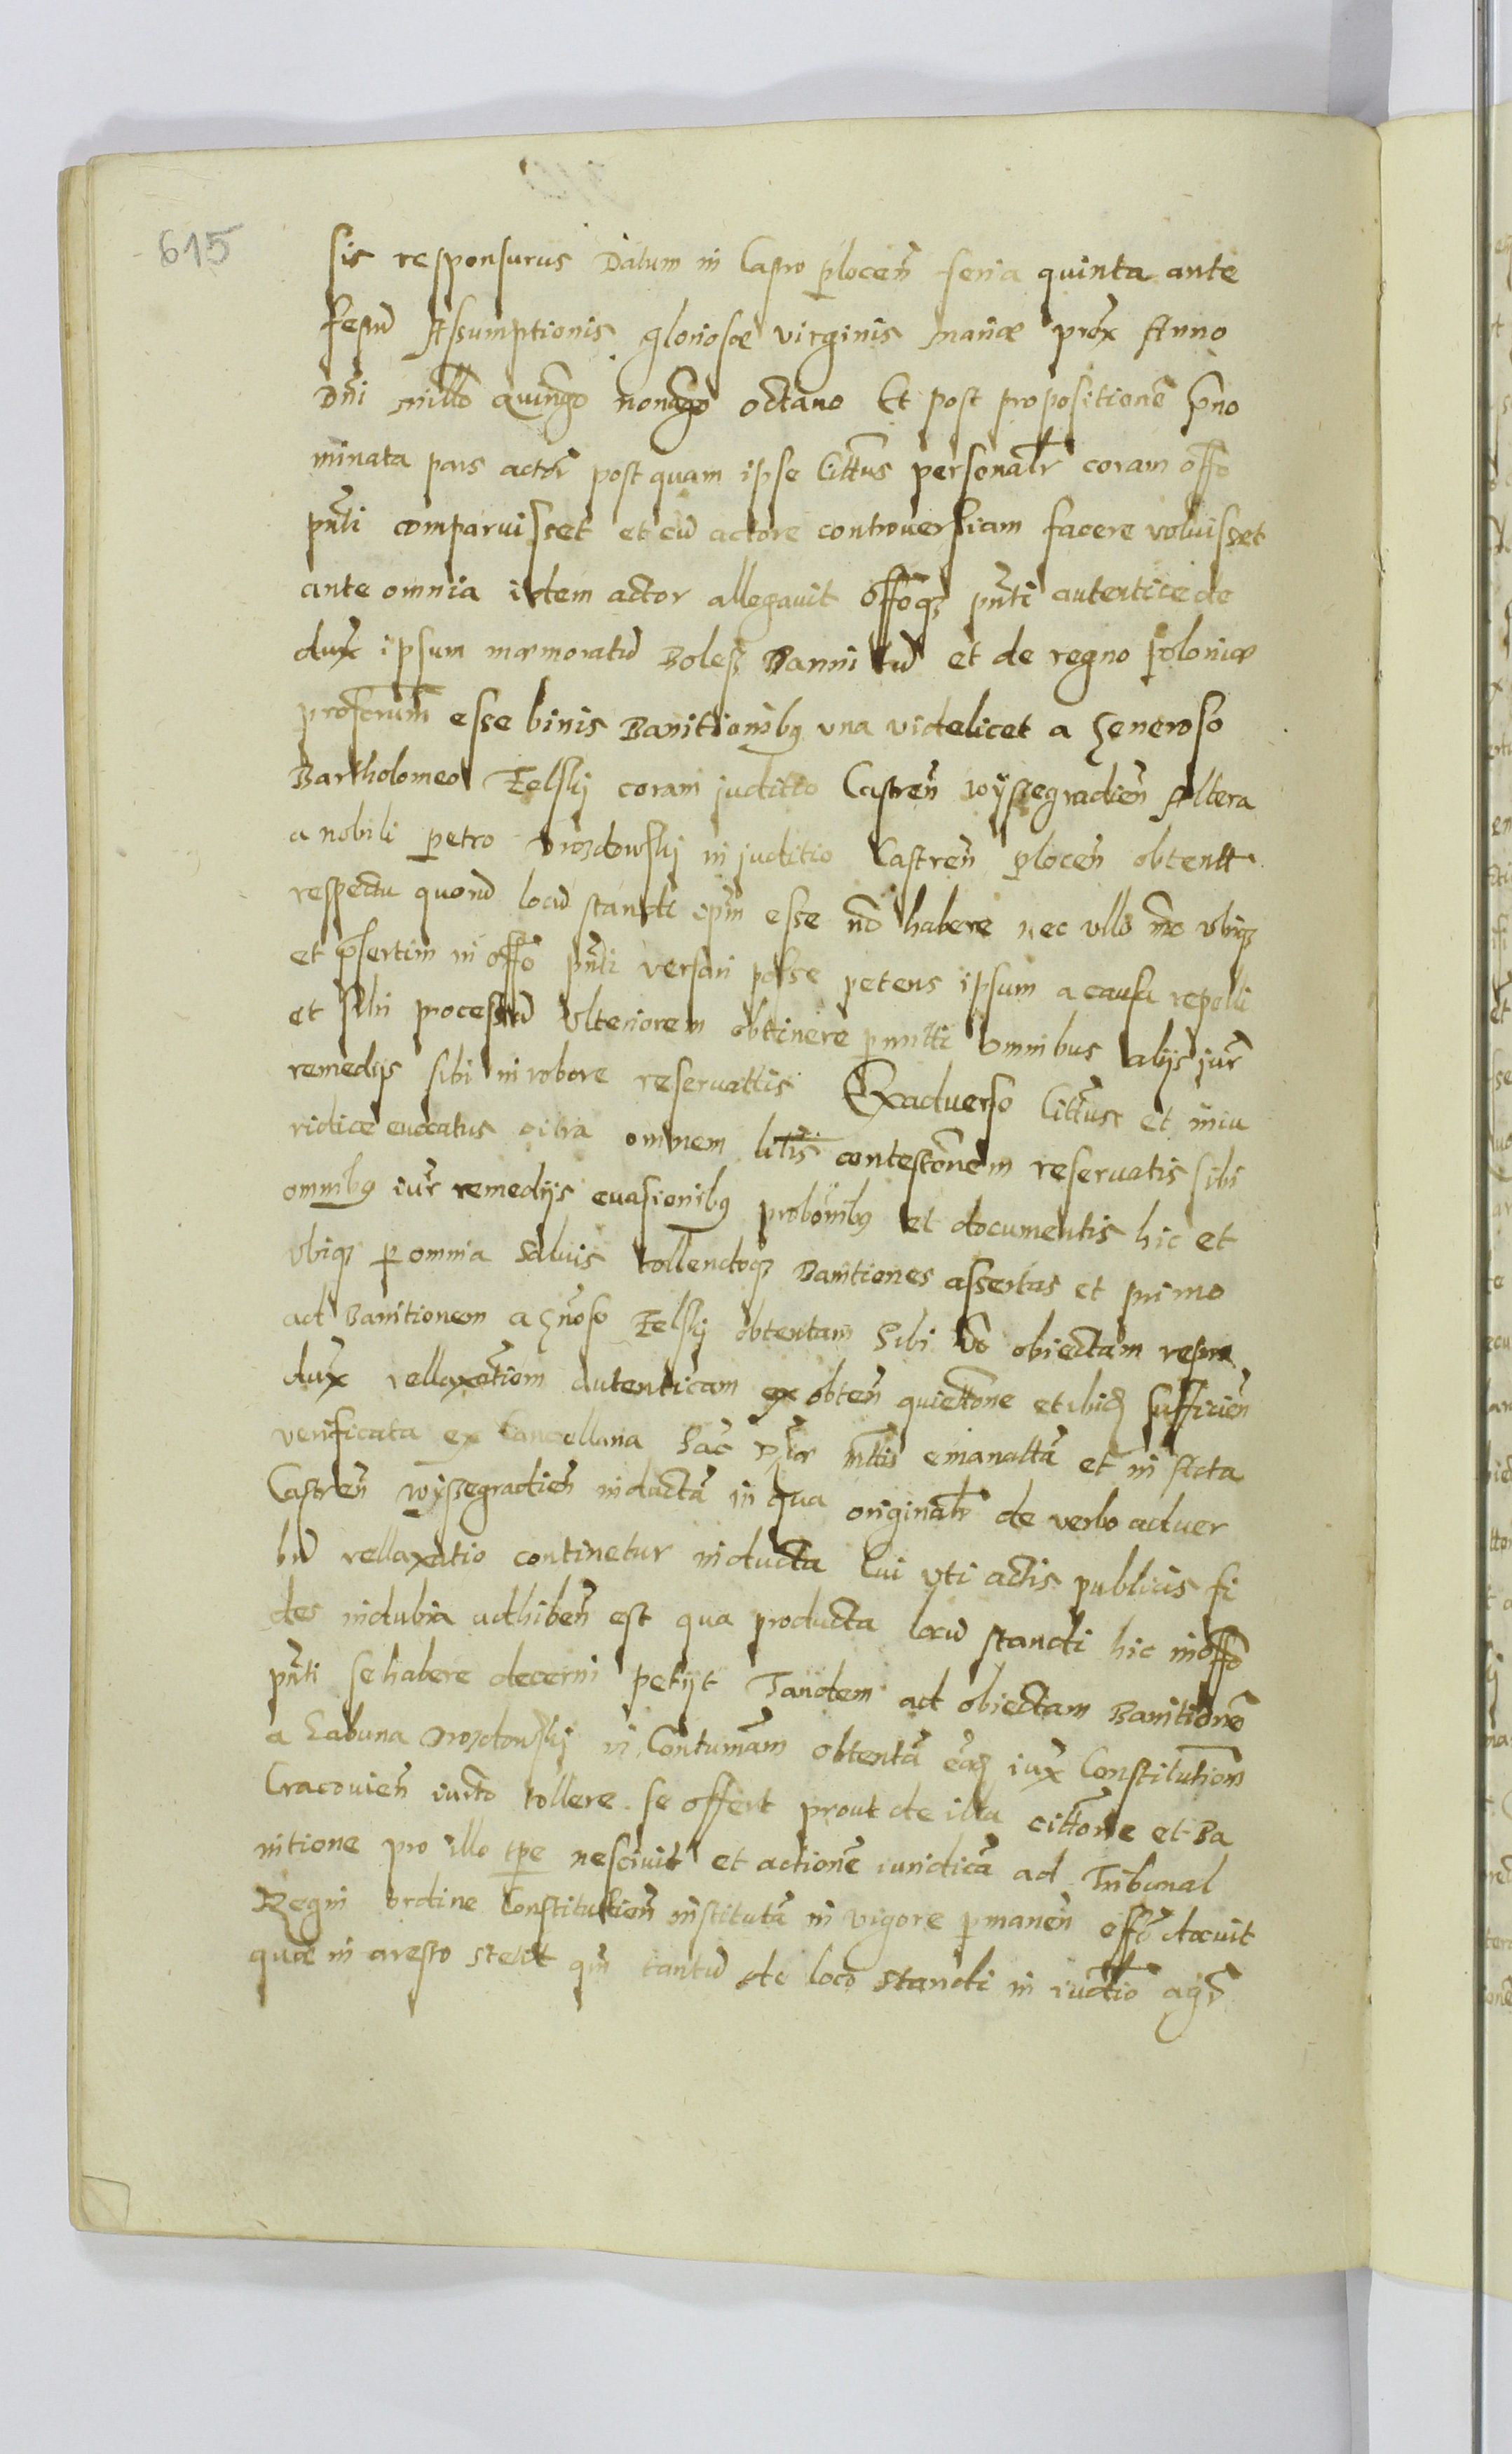 615
sis responsurus Datum in Castro plocen̄ feria quinta ante
festū Assumptionis gloriosæ virginis mariæ prox Anno
Dn̄i millo Quingo nonago octavo Et post propositionē pno
minata pars actor̄ post quam ipse Cittus personalr coram offo
pn̄ti comparuisset et cū actore controuersiam facere voluisset
ante omnia idem actor allegauit offoq3 pn̄ti autentice de
dux̄ ipsum mæmoratū Boless Bannitū et de regno poloniæ
proscrum̄ esse binis Banitionibq una videlicet a Generoso
Bartholomeo Zelskj coram juditio Castren̄ wyssegradien̄ Altera
a nobili petro Drozdowskj in juditio Castren̄ plocen̄ obtentt
respectu quorū locū standi ipm̄ esse nō habere nec ullo mō vbiq3
et p̄sertim in offō pn̄ti versari posse petens ipsum a causa repelli
et sibi processū vlteriorem obttinere pmitti omnibus alijs iur̄
remedijs sibi in robore reseruattis Exaduerso Cittus et iniu
ridice euocatus citra omnem litis contestōnem reseruatis sibi
omnibq iur̄ remedijs euasionibq probōnibq et documentis hic et
vbiq3 p omnia saluis tollendoq3 Banitiones assertas et primo
ad Banitionem a Gn̄oso Zelskj obtentam Sibi obiectam
dux̄ rellaxatiom̄ autenticam ex obten̄ quiettone et ibid sufficien̄
verificata ex Cancellaria Sac mttis emanattā et in Acta
Castren̄ wyssegradien̄ inductā in qua originalr̄ de verbo aduer
bū rellaxatio continetur inducta Cui vti actis publicis fi
des indubia adhiben̄ est qua producta locū standi hic in offō
pn̄ti se habere decerni petijt Tandem ad obiectam Banitionē
a Drozdowskj in Contumam̄ obtentā iux̄ Constitutiom̄
Cracouien̄ tollere se offert prout de illa cittone et Ba
nitione pro illo tpe nesciuit et actionē iuridicā ad Tribunal
Regni ordine Constitution̄ institutā in vigore pmanen̄ offō docuit
quæ in aresto stetit tantū de loco standi in iudtio agr̄